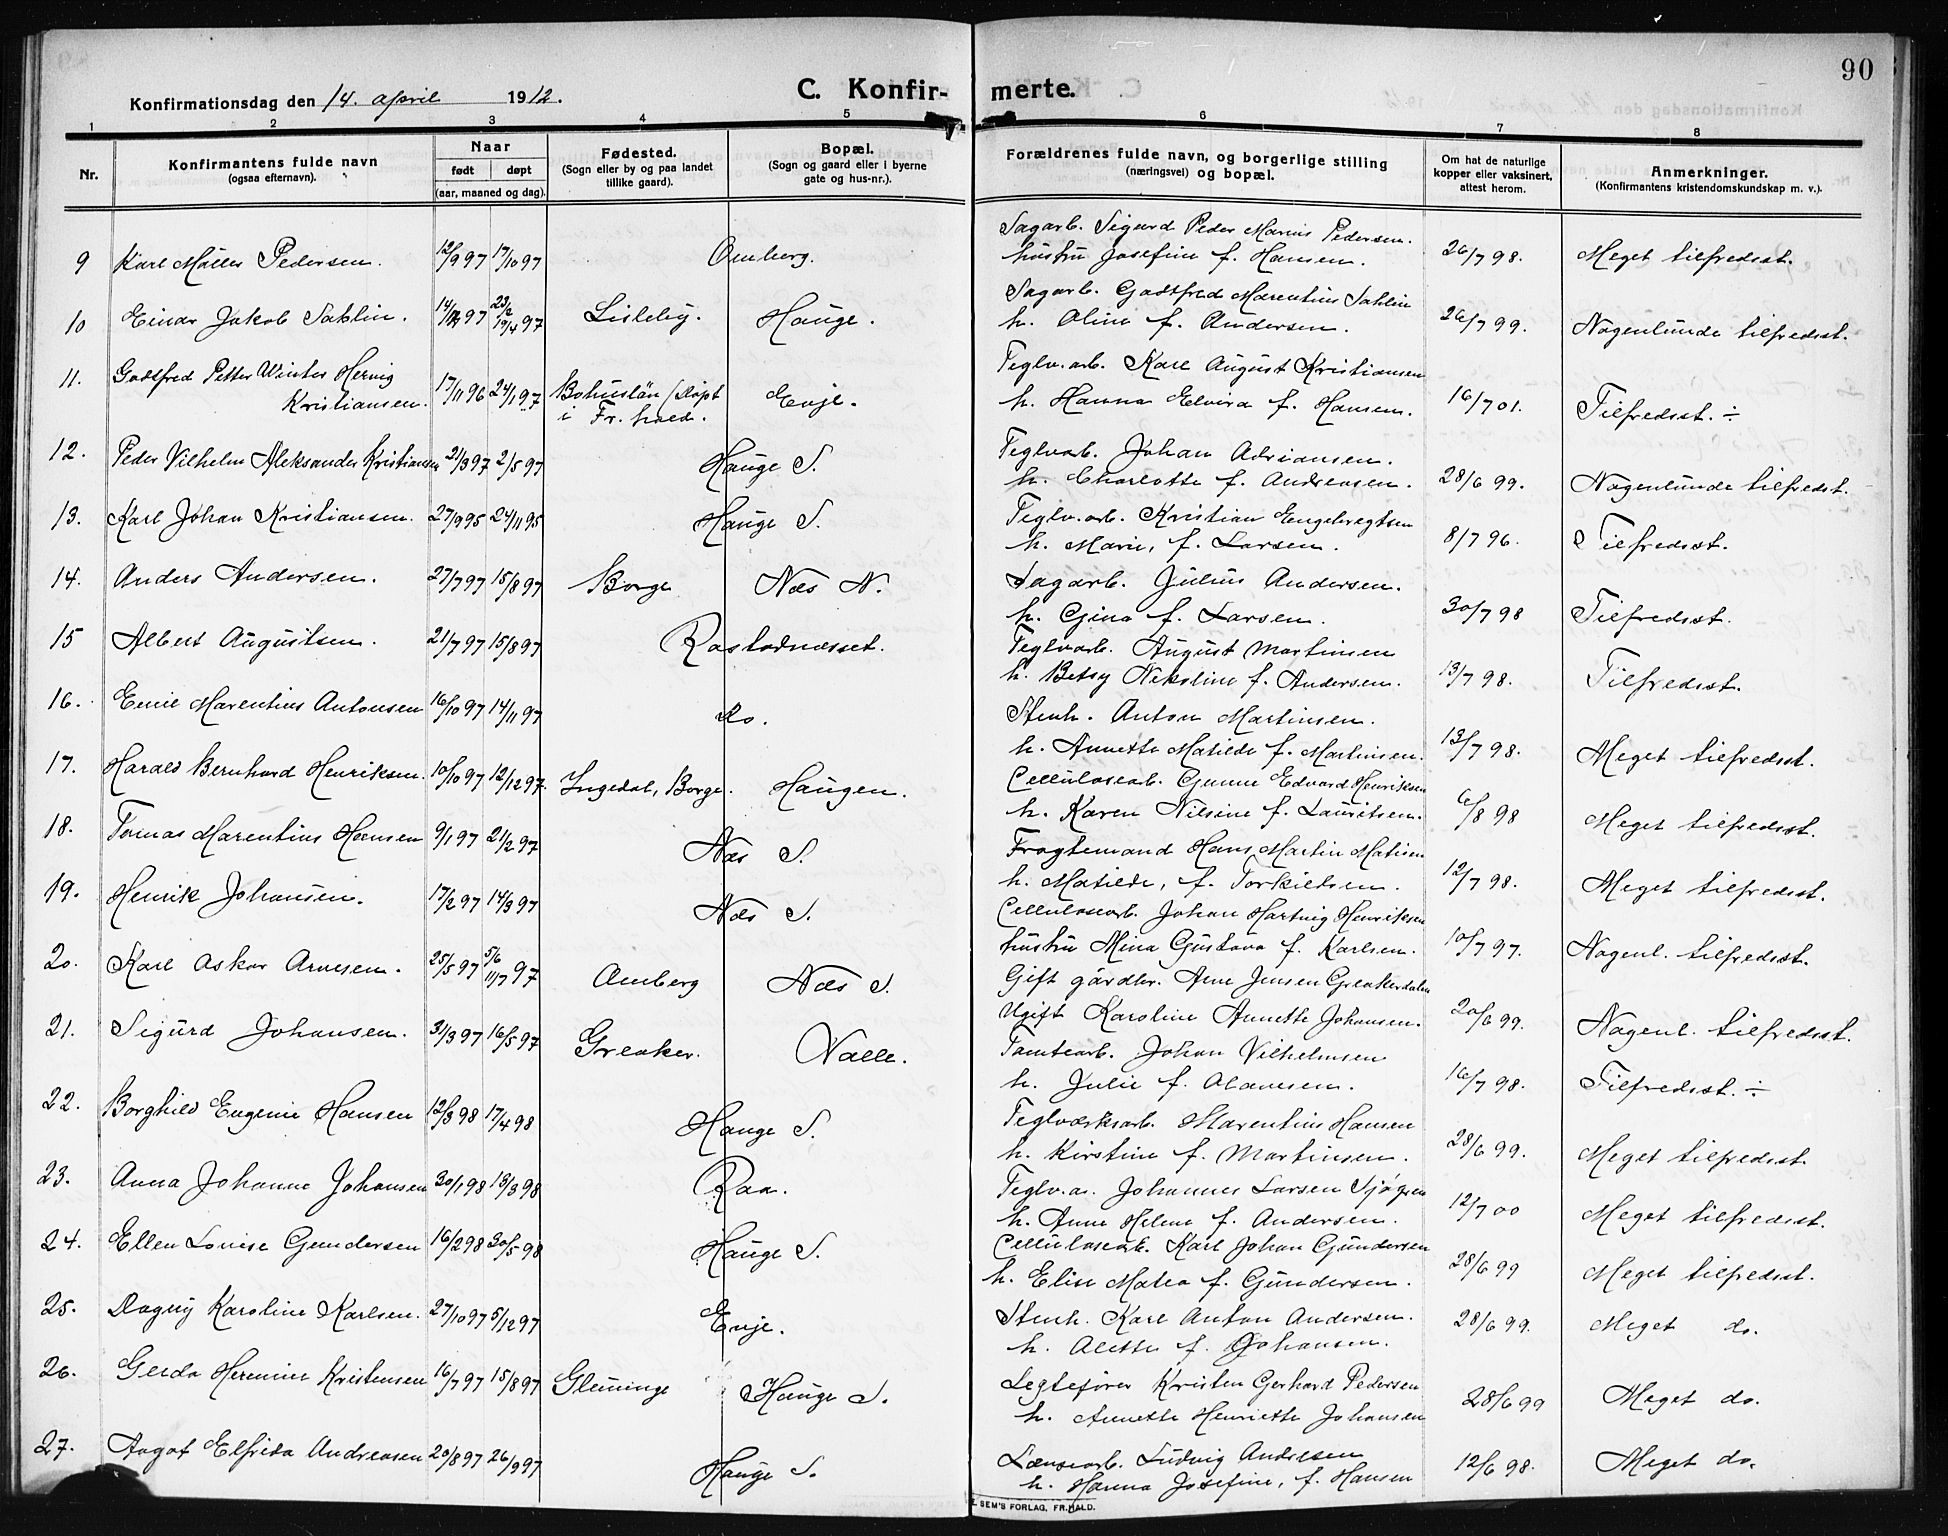 90
Konfirmationsdag den 14. april 1912.
C. Konfirmerte.
1 2 3 4 5 6 7 8
Nr.
Konfirmantens fulde navn
(ogsaa efternavn).
Naar
født døpt
(aar, maaned og dag).
Fødested.
(Sogn eller by og paa landet
tillike gaard).
Bopæl.
(Sogn og gaard eller i byerne
gate og hus-nr.).
Forældrenes fulde navn, og borgerlige stilling
(næringsvei) og bopæl.
Om hat de naturlige
kopper eller vaksinert,
attest herom.
Anmerkninger.
(Konfirmantens kristendomskundskap m. v.).
9 Karl Møller Pedersen. 12/9 97 17/10 97 Omberg. Sagarb. Sigurd Peder Marius Pedersen.
hustru Josefine f. Hansen. 26/7 98. Meget tilfredsst.
10 Einar Jakob Sahlin. 97 23/2 19/4 97 Lisleby. Hauge. Sagarb. Godtfred Marentius Sahlin
h. Oline f. Andersen. 26/7 99. Nogenlunde tilfredsst.
11. Godtfred Petter Winter Hervig
Kristiansen. 17/11 96 24/1 97 Bohuslän (døpt
i Fr.hald. Evje. Teglv.arb. Karl August Kristiansen
h. Hanna Elvira f. Hansen. 16/7 01. Tilfredsst. ÷
12. Peder Vilhelm Aleksander Kristiansen 21/3 97 2/5 97 Hauge S. Teglvarb. Johan Adriansen.
h. Charlotte f. Andreasen. 28/6 99. Nogenlunde tilfredsst.
13. Karl Johan Kristiansen. 27/9 95 24/11 95 Hauge S. Teglv.arb. Kristian Engebregtsen
h. Marie, f. Larsen. 8/7 96. Tilfredsst.
14. Anders Andersen. 27/7 97 15/8 97 Borge Næs N. Sagarb. Julius Andersen.
h. Gina f. Larsen. 30/7 98 Tilfredsst.
15 Albert Augustsen. 21/7 97 15/8 97 Rostadnæsset. Teglvarb. August Martinsen
h. Betsy Nikoline f. Andersen. 13/7 98. Tilfredsst.
16. Emil Marentius Antonsen 16/10 97 14/11 97 do. Stenh. Anton Martinsen.
h. Annette Matilde f. Martinsen. 13/7 98. Meget tilfredsst.
17. Harald Bernhard Henriksen. 10/10 97 12/12 97. Ingedal, Borge. Haugen. Cellulosearb. Gunne Edvard Henriksen
h. Karen Nilsine f. Lauritsen. 6/8 98 Meget tilfredsst.
18. Tomas Marentius Hansen 9/1 97 21/2 97 Næs S. Fragtemand Hans Martin Matisen
h. Matilde, f. Torkildsen. 12/7 98. Meget tilfredsst.
19. Henrik Johansen. 17/2 97 14/3 97 Næs S. Cellulosearb. Johan Hartvig Henriksen
hustru Mina Gustava f. Karlsen. 10/7 97. Nogenl. tilfredsst.
20. Karl Oskar Arnesen. 25/5 97 5/6 11/7 97 Omberg Næs S. Gift gårdbr. Arne Jensen Greakerdalen
Ugift Karoline Annette Johansen. 20/6 99. Nogenl. tilfredsst.
21. Sigurd Johansen. 31/3 97 16/5 97 Greaker. Valle. Tomtearb. Johan Vilhelmsen
h. Julie f. Olavesen. 16/7 98. Tilfredsst. ÷
22. Borghild Eugenie Hansen 12/3 98 17/4 98 Hauge S. Teglværksarb. Marentius Hansen
h. Kirstine f. Martinsen. 28/6 99. Meget tilfredsst.
23. Anna Johanne Johansen 30/1 98 13/3 98 Raa. Teglv.a. Johannes Larsen Sjøgren
h. Anne Helene f. Andersen. 12/7 00 Meget tilfredsst.
24. Ellen Lovise Gundersen 16/2 98 30/5 98 Hauge S. Cellulosearb. Karl Johan Gundersen
h. Elise Matea f. Gundersen. 28/6 99 Meget tilfredsst.
25. Dagny Karoline Karlsen. 27/10 97 5/12 97 Evje. Stenh. Karl Anton Andersen.
h. Alette f. Johansen. 28/6 99. Meget do.
26. Gerda Hermine Kristensen 16/7 97 15/8 97 Glemminge Hauge S. Legtefører Kristen Gerhard Pedersen
h. Annette Henriette Johansen 28/6 99 Meget do.
27. Aagot Elfrida Andreasen 20/8 97 26/9 97 Hauge S. Lænsearb. Ludvig Andresen
h. Hanna Josefine, f. Hansen 12/6 98. Meget do.
SEM'S FORLAG, FR.HALD.